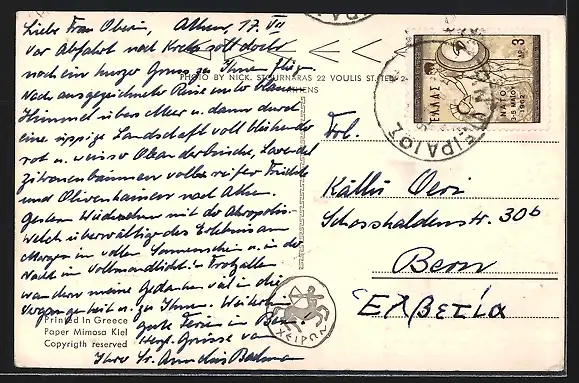 Liebe Frau Oberin, Athen 17. VII
Vor Abfahrt nach Kreta soll doch
noch ein kurzer Gruss zu Ihnen
PHOTO BY NICK. STOURNARAS 22 VOULIS ST. TEL.
ATHENS
Nach ausgezeichneter Reise unter blauem
Himmel übers Meer u. dann durch
eine üppige Landschaft voll blühender
rot u. weisser Oleanderbüsche, Lavendel
Zitronenbäumen voller reifer Früchte
und Olivenhainen nach Athen.
Gestern Wiedersehen mit der Akropolis-
welch überwältigendes Erlebnis am
Morgen in vollem Sonnenschein u. in der
Nacht im Vollmondlicht! Trotz allem
wandern meine Gedanken viel in die
Vergangenheit u. zu Ihnen. Weiterhin
gute Ferien in Bern.
Herzl. Grüsse von
Ihrer Sr.
Printed in Greece
Paper Mimosa Kiel
Copyrigth reserved
ΕΛΛΑΣ
ΔΡ. 3
ΝΑΤΟ
3-5 ΜΑΪΟΥ 1962
ΠΕΙΡΑΙΕΥΣ
Frl.
Käthi Oeri
Schosshaldenstr. 30b
Bern
Ελβετία